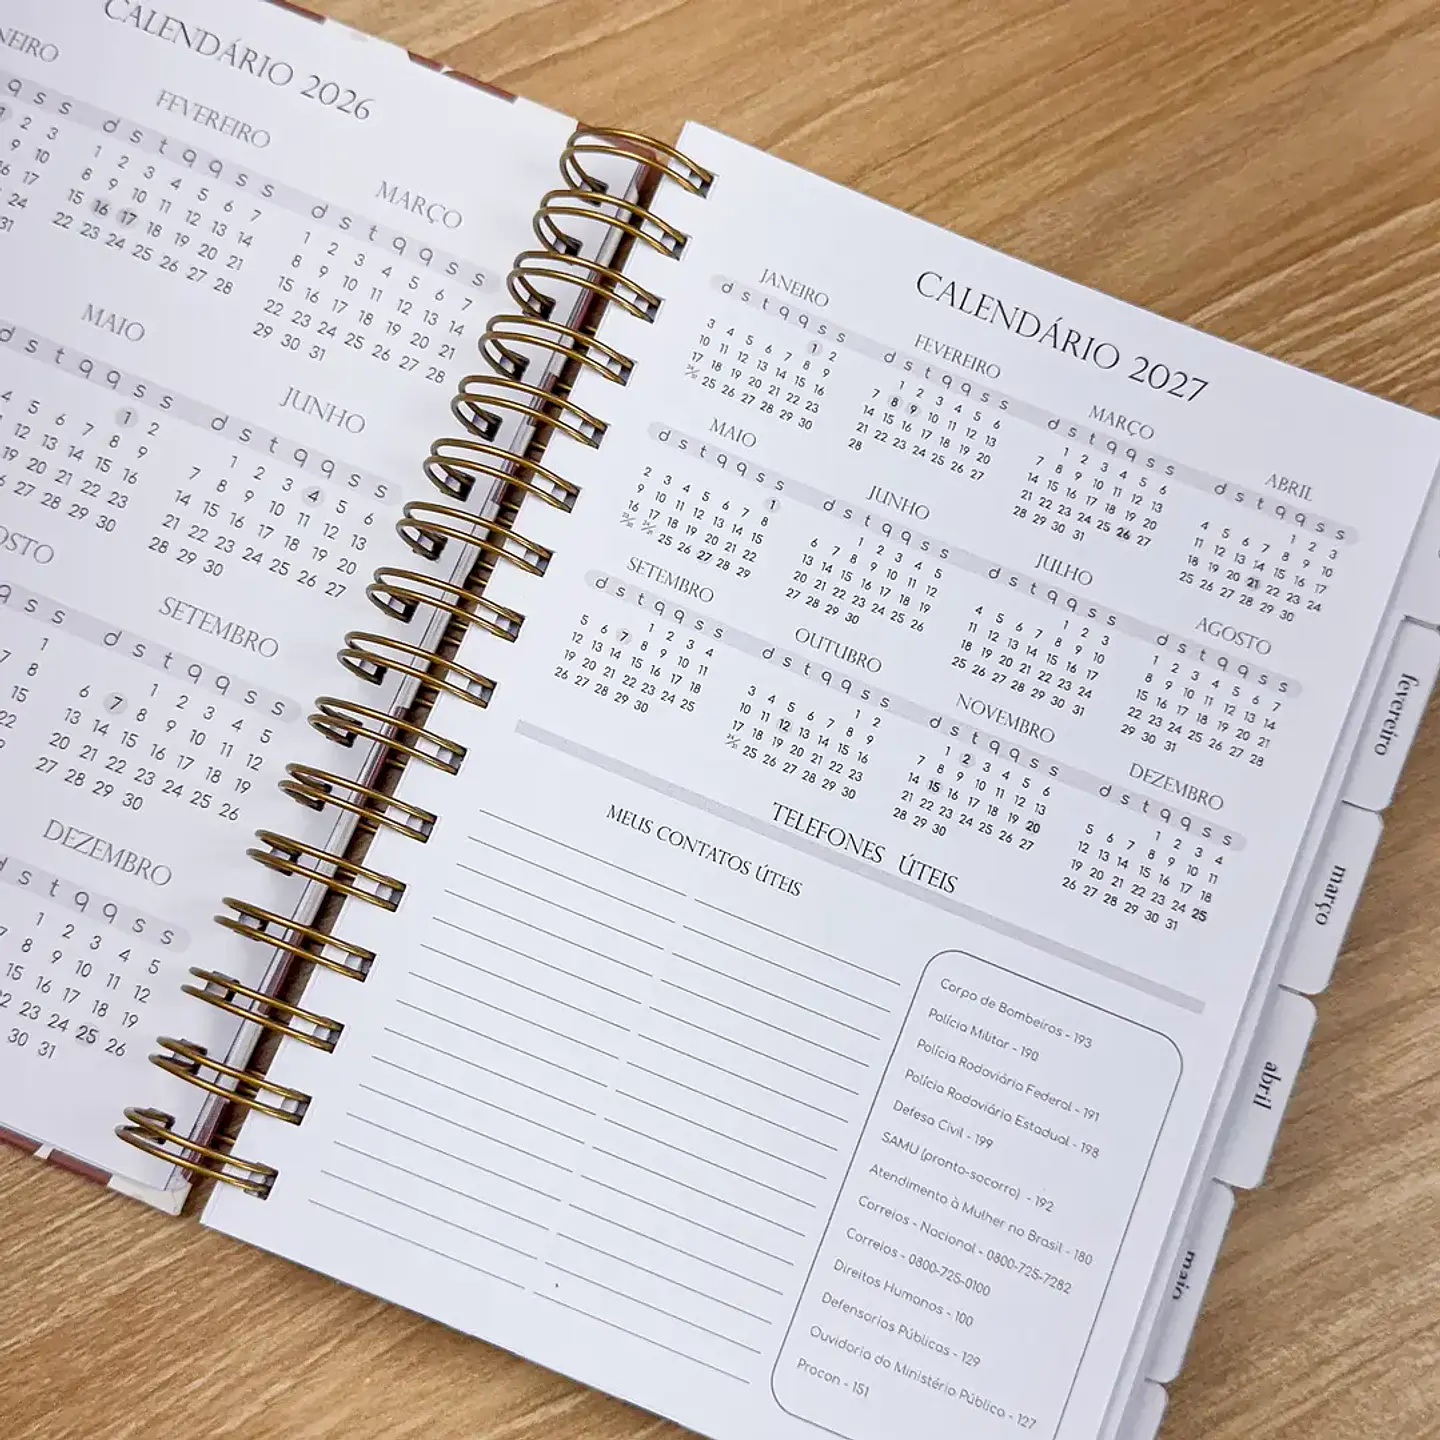 CALENDÁRIO 2026
NEIRO
q s s
1 2 3
9 10
16 17
24
31
FEVEREIRO
d s t q q s s
1 2 3 4 5 6 7
8 9 10 11 12 13 14
15 16 17 18 19 20 21
22 23 24 25 26 27 28
MARÇO
d s t q q s s
1 2 3 4 5 6 7
8 9 10 11 12 13 14
15 16 17 18 19 20 21
22 23 24 25 26 27 28
29 30 31
MAIO
d s t q q s s
1 2
4 5 6 7 8 9
12 13 14 15 16
19 20 21 22 23
26 27 28 29 30
JUNHO
d s t q q s s
1 2 3 4 5 6
7 8 9 10 11 12 13
14 15 16 17 18 19 20
21 22 23 24 25 26 27
28 29 30
OSTO
q s s
1
7 8
15
22
9
SETEMBRO
d s t q q s s
1 2 3 4 5
6 7 8 9 10 11 12
13 14 15 16 17 18 19
20 21 22 23 24 25 26
27 28 29 30
DEZEMBRO
d s t q q s s
1 2 3 4 5
7 8 9 10 11 12
15 16 17 18 19
22 23 24 25 26
30 31
CALENDÁRIO 2027
JANEIRO
d s t q q s s
1 2
3 4 5 6 7 8 9
10 11 12 13 14 15 16
17 18 19 20 21 22 23
24/31 25 26 27 28 29 30
FEVEREIRO
d s t q q s s
1 2 3 4 5 6
7 8 9 10 11 12 13
14 15 16 17 18 19 20
21 22 23 24 25 26 27
28
MARÇO
d s t q q s s
1 2 3 4 5 6
7 8 9 10 11 12 13
14 15 16 17 18 19 20
21 22 23 24 25 26 27
28 29 30 31
ABRIL
d s t q q s s
1 2 3
4 5 6 7 8 9 10
11 12 13 14 15 16 17
18 19 20 21 22 23 24
25 26 27 28 29 30
MAIO
d s t q q s s
1
2 3 4 5 6 7 8
9 10 11 12 13 14 15
16 17 18 19 20 21 22
25 26 27 28 29
JUNHO
d s t q q s s
1 2 3 4 5
6 7 8 9 10 11 12
13 14 15 16 17 18 19
20 21 22 23 24 25 26
27 28 29 30
JULHO
d s t q q s s
1 2 3
4 5 6 7 8 9 10
11 12 13 14 15 16 17
18 19 20 21 22 23 24
25 26 27 28 29 30 31
AGOSTO
d s t q q s s
1 2 3 4 5 6 7
8 9 10 11 12 13 14
15 16 17 18 19 20 21
22 23 24 25 26 27 28
29 30 31
SETEMBRO
d s t q q s s
1 2 3 4
5 6 7 8 9 10 11
12 13 14 15 16 17 18
19 20 21 22 23 24 25
26 27 28 29 30
OUTUBRO
d s t q q s s
1 2
3 4 5 6 7 8 9
10 11 12 13 14 15 16
17 18 19 20 21 22 23
24/31 25 26 27 28 29 30
NOVEMBRO
d s t q q s s
1 2 3 4 5 6
7 8 9 10 11 12 13
14 15 16 17 18 19 20
21 22 23 24 25 26 27
28 29 30
DEZEMBRO
d s t q q s s
1 2 3 4
5 6 7 8 9 10 11
12 13 14 15 16 17 18
19 20 21 22 23 24 25
26 27 28 29 30 31
TELEFONES ÚTEIS
MEUS CONTATOS ÚTEIS
Corpo de Bombeiros - 193
Polícia Militar - 190
Polícia Rodoviária Federal - 191
Polícia Rodoviária Estadual - 198
Defesa Civil - 199
SAMU (pronto-socorro) - 192
Atendimento à Mulher no Brasil - 180
Correios - Nacional - 0800-725-7282
Correios - 0800-725-0100
Direitos Humanos - 100
Defensorias Públicas - 129
Ouvidoria do Ministério Público - 127
Procon - 151
fevereiro
março
abril
maio